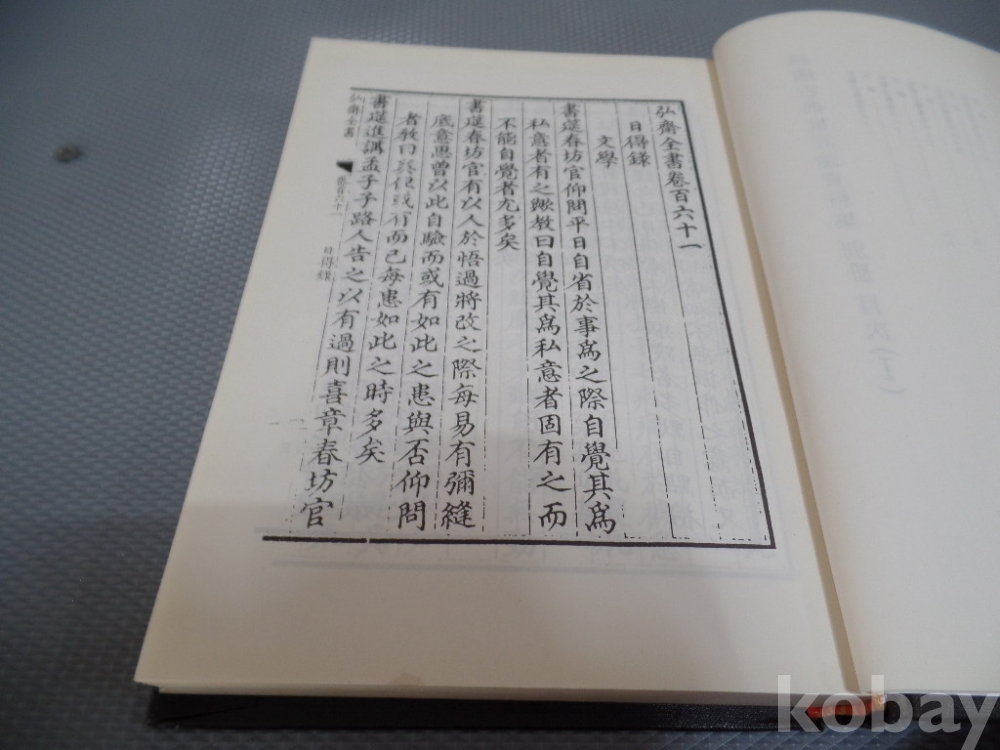 弘齋全書卷百六十一
日得錄
文學
書筵春坊官仰問平日自省於事爲之際自覺其爲
私意者有之歟敎曰自覺其爲私意者固有之而
不能自覺者尤多矣
書筵春坊官有以人於悟過將改之際每易有彌縫
底意思曾以此自驗而或有如此之患與否仰問
者敎曰
而已每患如此之時多矣
書筵進講孟子子路人告之以有過則喜章春坊官
弘齋全書
卷百六十一
日得錄
kobay